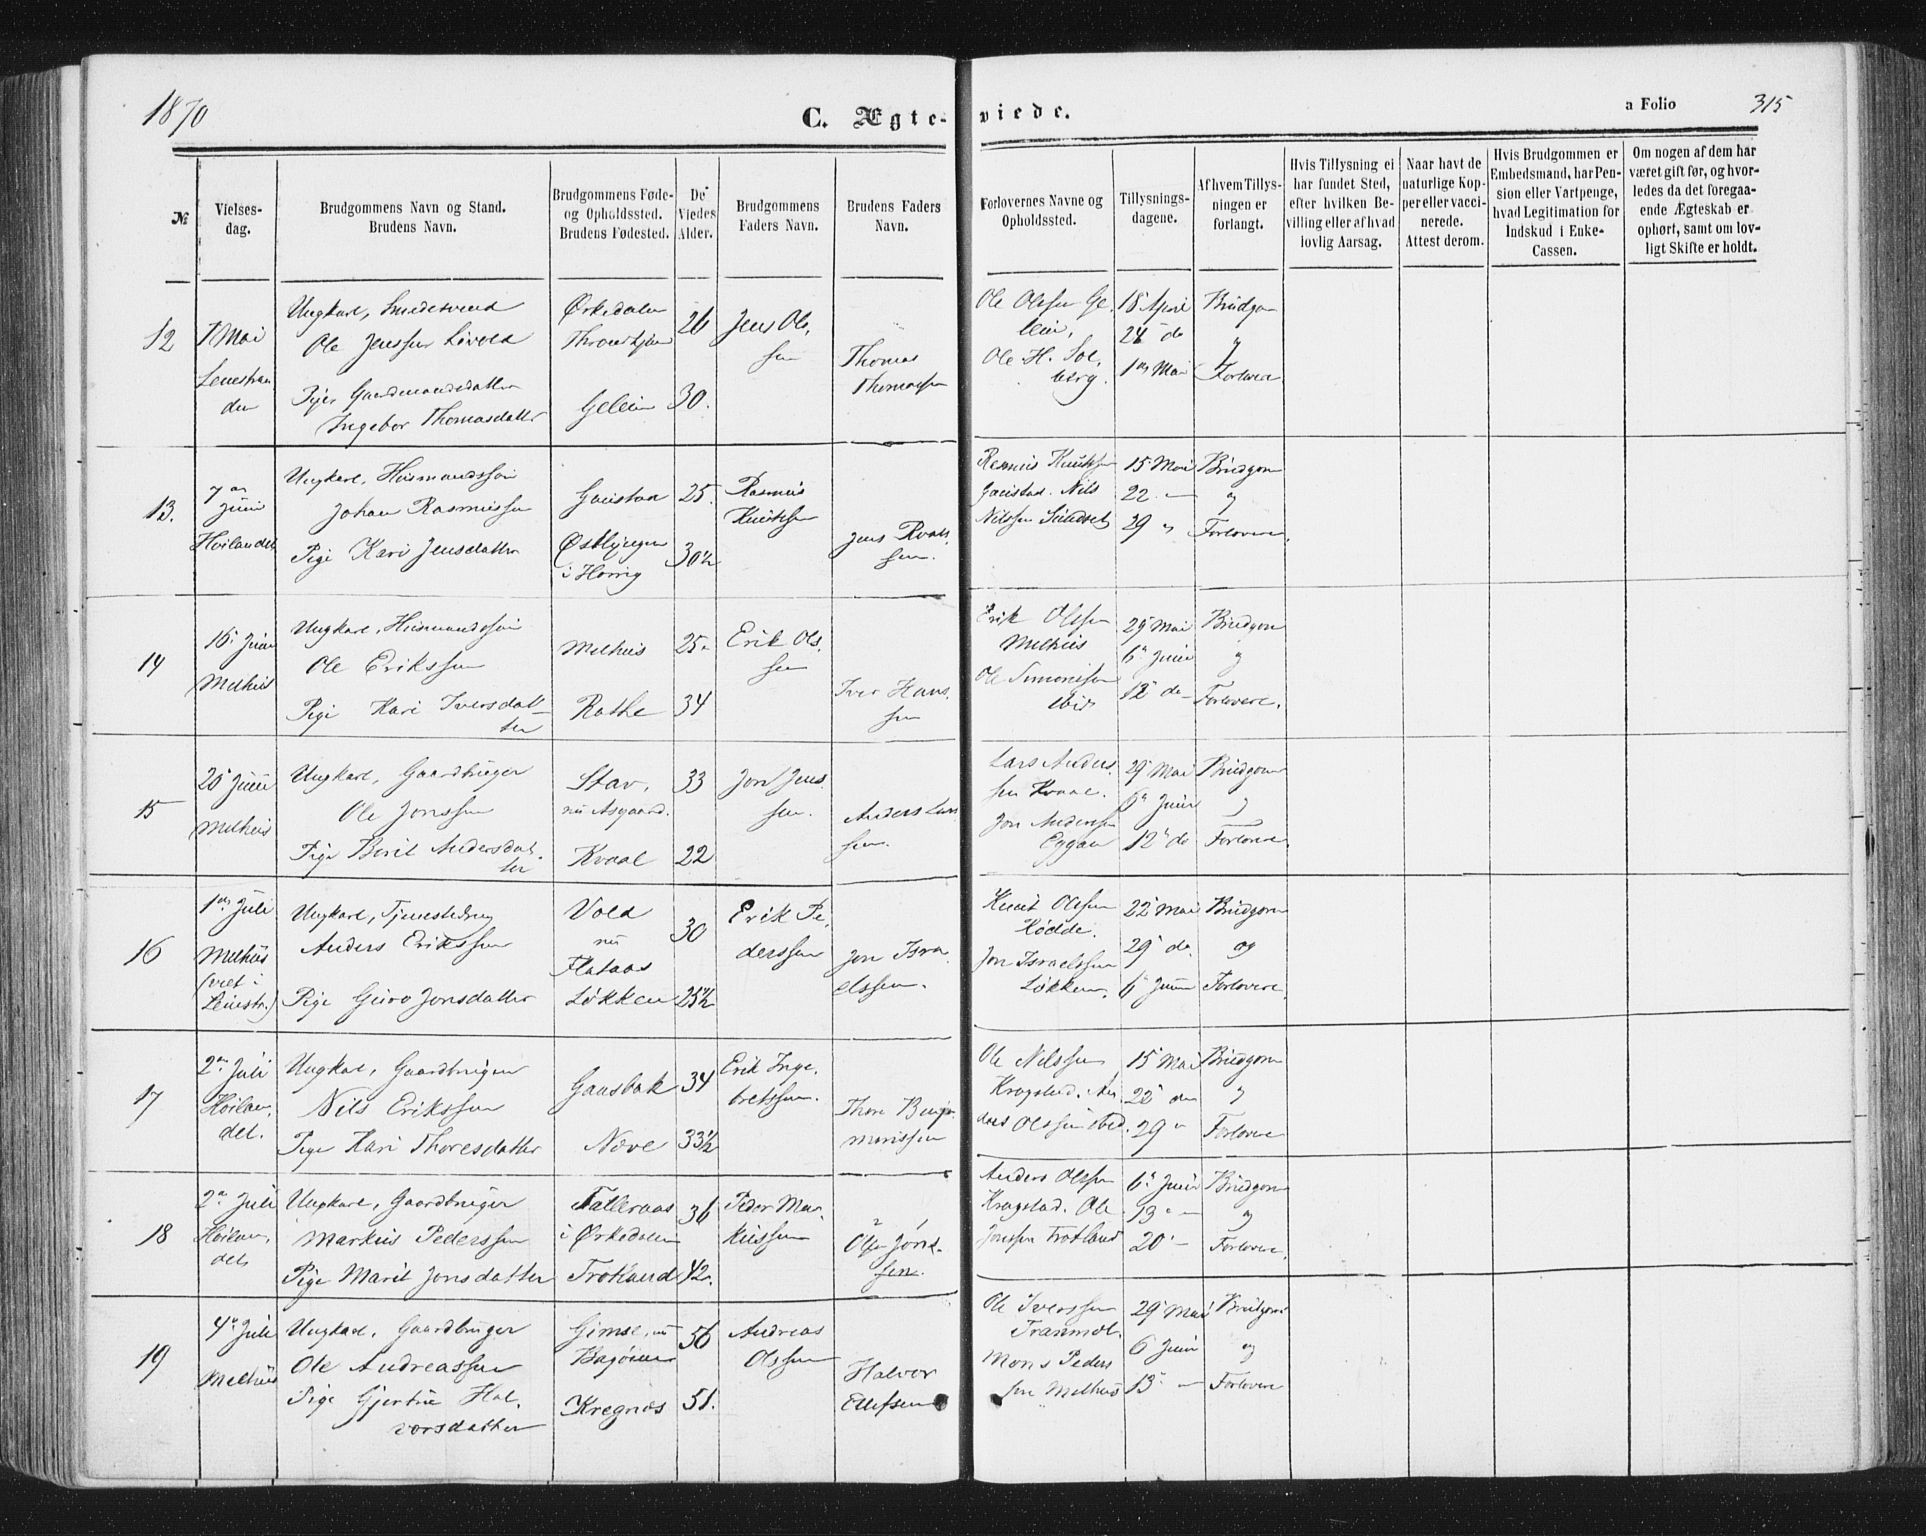 1870
C. Ægte-
viede.
a Folio
315
№
Vielses-
dag.
Brudgommens Navn og Stand.
Brudens Navn.
Brudgommens Føde-
og Opholdssted.
Brudens Fødested.
De
Viedes
Alder.
Brudgommens
Faders Navn.
Brudens Faders
Navn.
Forlovernes Navne og
Opholdssted.
Tillysnings-
dagene.
Af hvem Tillys-
ningen er
forlangt.
Hvis Tillysning ei
har fundet Sted,
efter hvilken Be-
villing eller af hvad
lovlig Aarsag.
Naar havt de
naturlige Kop-
per eller vacci-
nerede.
Attest derom.
Hvis Brudgommen er
Embedsmand, har Pen-
sion eller Vartpenge,
hvad Legitimation for
Indskud i Enke-
Cassen.
Om nogen af dem har
været gift før, og hvor-
ledes da det foregaa-
ende Ægteskab er
ophørt, samt om lov-
ligt Skifte er holdt.
12
1 Mai
Leinstran
den
Ungkarl, Smedesvend
Ole Jenssen
Pige, Gaardmandsdatter
Ingebor Thomasdatter
Ørkedalen
Throndhjem
Geleim
26
30.
Jens Ols,
sen
Thomas
Thomassen
Ole Olssen Ge,
leim,
Ole H. Sol,
berg.
18 April
24 do
1ste Mai
Brudgom
og
Forlovere
13.
7de
Juni
Høilandet
Ungkarl, Husmandssøn
Johan Rasmussen
Pige Kari Jensdatter
Gaustad
Østbyngen
i Horrig
25.
30½
Rasmus
Knutssen
Jens Roals,
sen.
Rasmus Knutssen
Gaustad. Nils
Nilssen Sundset
15 Mai
22 —
29 "
Brudgom
og
Forlovere.
14
16 Juni
Melhus
Ungkarl, Husmandssøn
Ole Erikssen
Pige Kari Iversdat-
ter
Melhus
Rathe
25
34
Erik Ols,
sen
Iver Hans,
sen
Erik Olssen
Melhus
Ole Simonssen
ibid
29 Mai
6 Juni
12 do
Brudgom
og
Forlovere.
15
20 Juni
Melhus
Ungkarl, Gaardbruger
Ole Jonssen
Pige Berit Andersdat-
ter
Stav,
nu Asgaard.
Kvaal
33
22
Jon Jens
sen.
Anders Lars
sen.
Lars Anders
sen Kvaal.
Jon Anderssen
Eggan
29 Mai
6 Juni
12 do
Brudgom
og
Forlovere.
16
1ste Juli
Melhus
(viet i
Leinstr.)
Ungkarl, Tjenestedreng
Anders Erikssen
Pige Guro Jonsdatter
Vold
nu
Flataas
Løkken
30
25½
Erik Pe,
derssen
Jon Isra
elssen.
Knut Olssen
Hødde.
Jon Israelssen
Løkken,
22 Mai
29 do.
6 Juni
Brudgom
og
Forlovere.
17
2den Juli
Høilan,
det.
Ungkarl, Gaardbruger
Nils Erikssen
Pige Kari Thoresdatter
Gaasbak
Næve
34
33½
Erik Inge,
bretssen.
Thore Benja
minssen
Ole Nilssen
Kragstad. An
ders Olssen ibid.
15 Mai
22 do
29 "
Brudgom
og
Forlovere
18
2den Juli
Høilan,
det
Ungkarl, Gaardbruger
Markus Pederssen
Pige Marit Jonsdatter
Talleraas
i Ørkedalen
Trotland
36
42.
Peder Mar,
kussen
2 1
Olsen Jons-
sen.
Anders Olssen
Kragstad. Ole
Jonssen Trotland
6 Juni
13 —
20 —
Brudgom
og
Forlovere.
19
4de Juli
Melhus
Ungkarl, Gaardbruger
Ole Andreassen
Pige Gjertru Hal,
vorsdatter
Gimse, nu
Bagøien
Kregnes
56
51.
Andreas
Olssen
Halvor
Ellefsen
Ole Iverssen
Tranmæl.
Mons Peders
sen Melhus
29 Mai
6 Juni
13 —
Brudgom
og
Forlovere